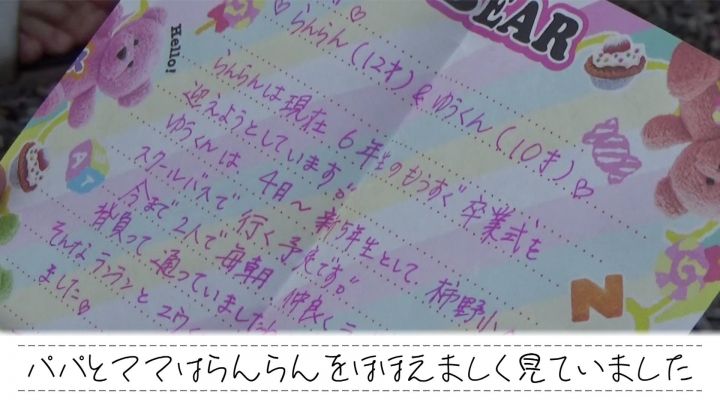 BEAR
Hello!
♡らんらん(12才)&ゆうくん(10才)♡
らんらんは現在6年生のもうすぐ卒業式を
迎えようとしています。
ゆうくんは4月〜新5年生として柿野小
スクールバスで行く予定です。
今まで2人で毎朝仲良く
背負って通っていました
そんなランランとユウ
ました♡
A
N
パパとママはらんらんをほほえましく見ていました